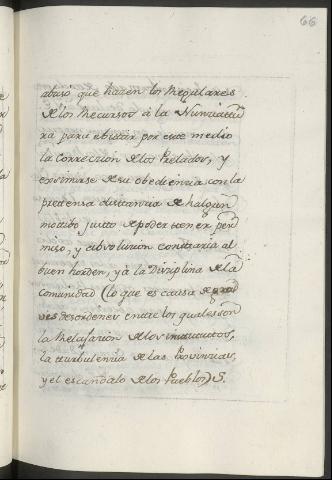 66
abuso que hacen los Regulares
de los Recursos à la Nunciatu
ra para evitar por este medio
la correccion de los Prelados, y
eximirse de su obediencia con la
pretensa distancia de halgun
motibo justo de poder tener per
miso, y absolucion contraria al
buen horden, y à la Disciplina de la
comunidad (lo que es causa de gran
des desordenes entre los quales son
la Relajasion de los institutos,
la turbulencia de las Provincias,
y el escandalo de los Pueblos) S.